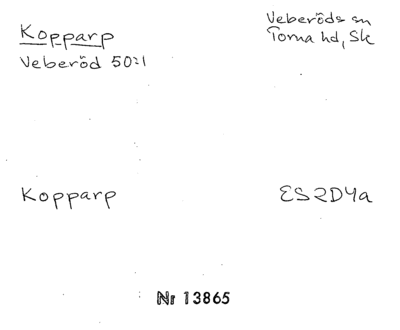 Kopparp
Veberöd 50:1
Veberöds sn
Torna hd, Sk
Kopparp
ES2D4a
Nr 13865